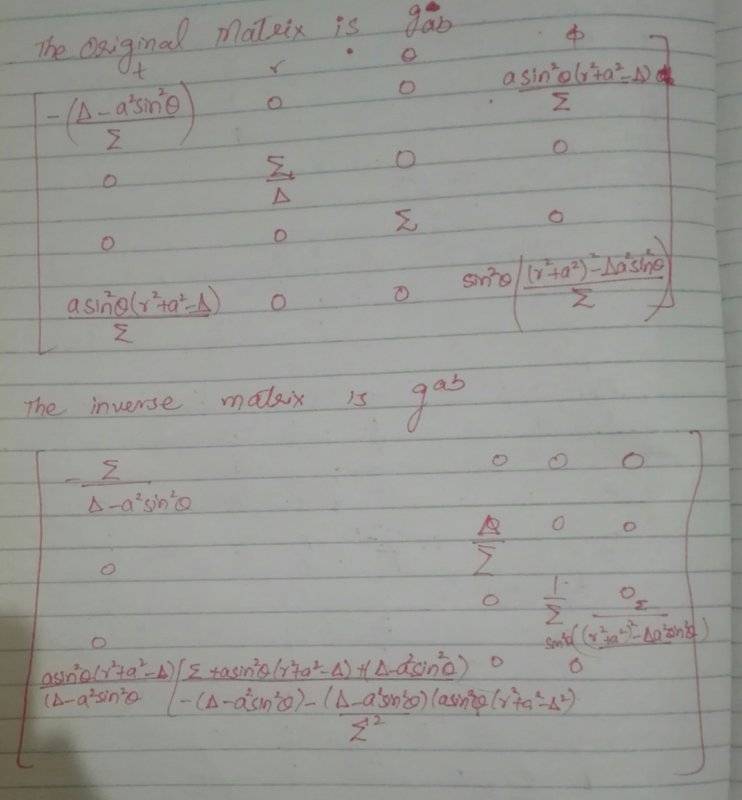 The original matrix is gab
t r θ φ
-(Δ-a²sin²θ/Σ) 0 0 asin²θ(r²+a²-Δ)/Σ
0 Σ/Δ 0 0
0 0 Σ 0
asin²θ(r²+a²-Δ)/Σ 0 0 sin²θ((r²+a²)²-Δa²sin²θ/Σ)
The inverse matrix is gab
-Σ/Δ-a²sin²θ 0 0 0
0 Δ/Σ 0 0
0 0 1/Σ 0
asin²θ(r²+a²-Δ)(Σ+asin²θ(r²+a²-Δ)+(Δ-a²sin²θ) 0 0 Σ/sin²θ((r²+a²)²-Δa²sin²θ)
(Δ-a²sin²θ (-(Δ-a²sin²θ)-(Δ-a²sin²θ)(asin²θ(r²+a²-Δ²)
Σ²